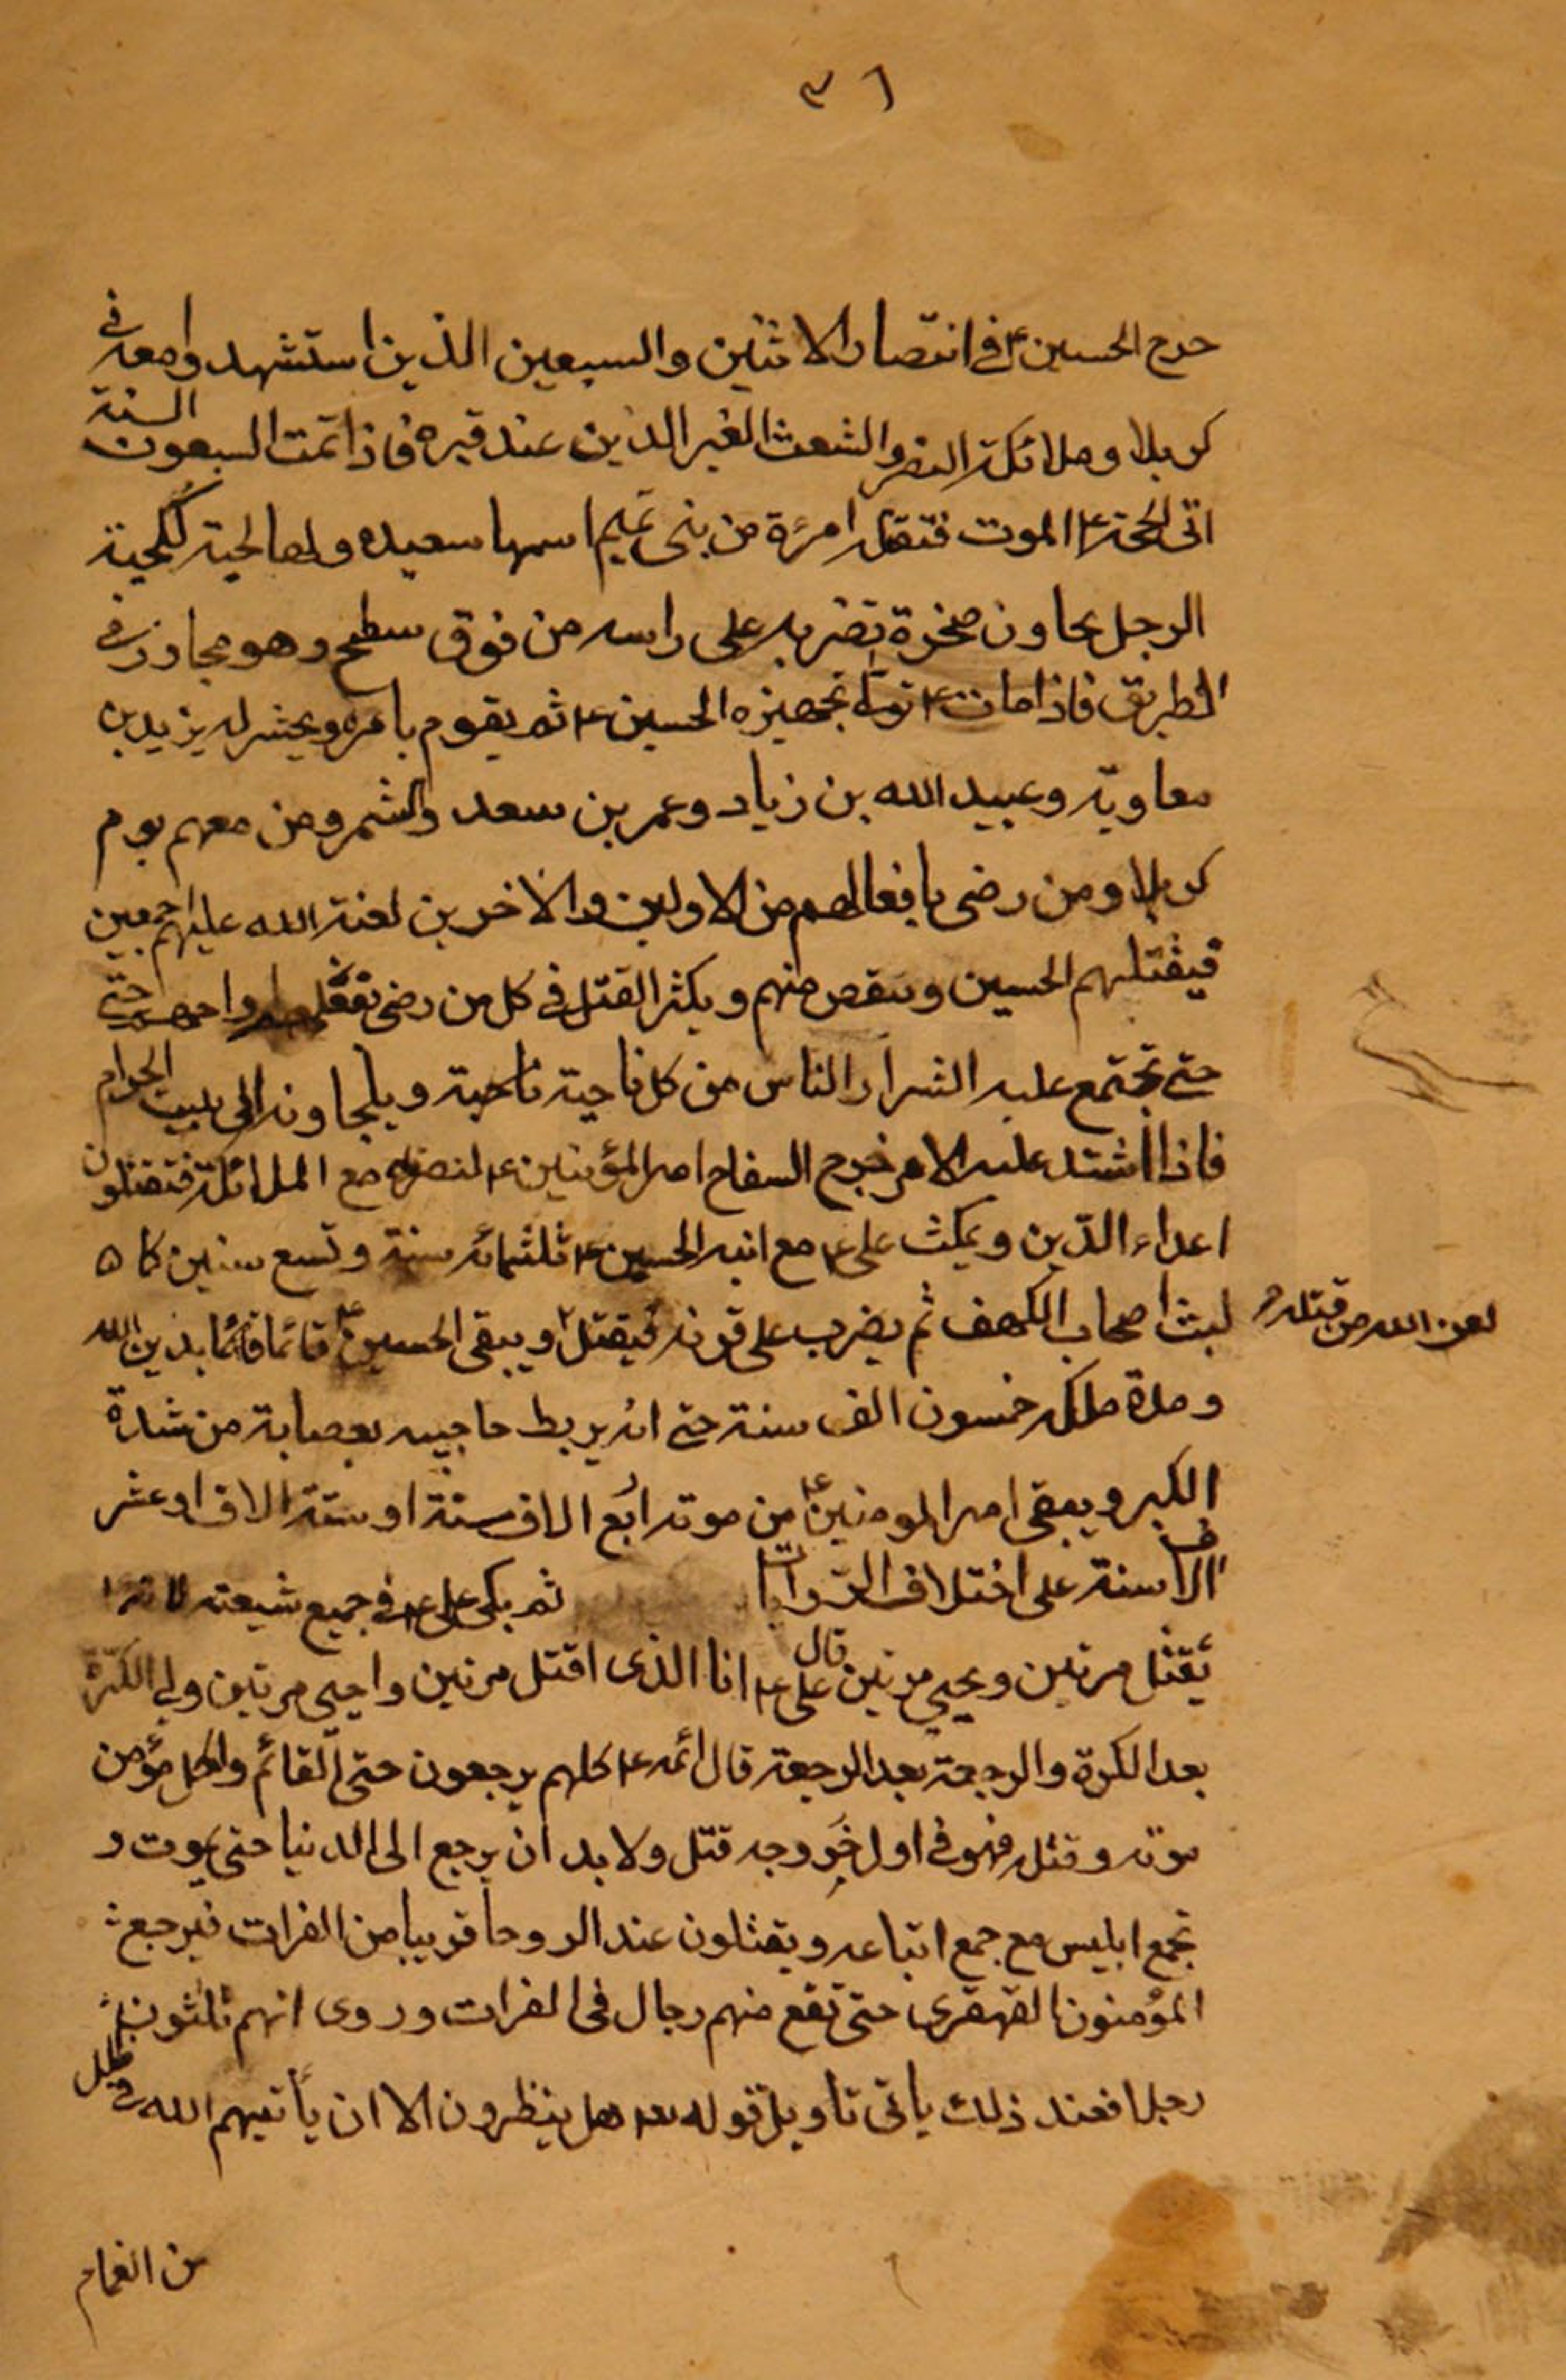 ٣٦
خرج الحسين ع في انتصار الاثنين والسبعين الذين استشهدوا معه في
كربلا وملائكة النصر والشعث الغبر الذين عند قبره فاذا تمت السبعون السنة
اتى الحجة ع الموت فتقتله امرئة من بنى تميم اسمها سعيده ولها لحية كلحية
الرجل بجاون صخرة تضربه على راسه من فوق سطح وهو مجاوز في
الطريق فاذا مات ع تولى تجهيزه الحسين ع ثم يقوم بامره ويحشر له يزيد بن
معاوية وعبيد الله بن زياد وعمر بن سعد والشمر ومن معهم يوم
كربلا ومن رضى بافعالهم من الاولين والاخرين لعنة الله عليهم اجمعين
فيقتلهم الحسين وينقص منهم ويكثر القتل في كل من رضى بفعلهم حتى
حتى تجتمع عليه اشرار الناس من كل ناحية ناحية ويلجاونه الى بيت الحرام
فاذا اشتد عليه الامر خرج السفاح امير المؤمنين ع لنصره مع الملائكة فتقتلون
اعداء الدين ويمكث على ع مع ابنه الحسين ع ثلثمائه سنة وتسع سنين كما
لبث اصحاب الكهف ثم يضرب على قرنه فيقتل ٢ ويبقى الحسين ع قائما قائما بدين الله
لعن الله من قتله
ومدة ملكه خمسون الف سنة حتى انه يربط حاجبيه بعصابة من شدة
الكبر ويبقى امير المومنين ع من موته اربع الاف سنة او ستة الاف او عشر
الاف سنة على اختلاف الروايات ثم يكر على ع في جميع شيعته
يقتل مرتين ويحيى مرتين قال على ع انا الذى اقتل مرتين واحيى مرتين ولى الكرة
بعد الكرة والرجعة بعد الرجعة قال ائمه ع كلهم يرجعون حتى القائم ولكل مؤمن
موته وقتله فهو في اول خروجه قتل ولا بد ان يرجع الى الدنيا حتى يموت و
تجمع ابليس مع جمع اتباعه ويقتلون عند الروحا قريبا من الفرات فيرجع
المؤمنون القهقرى حتى تقع منهم رجال فى الفرات وروى انهم ثلثون
رجلا فعند ذلك ياتى تاويل قوله تعا هل ينظرون الا ان يأتيهم الله في ظلل
من الغمام